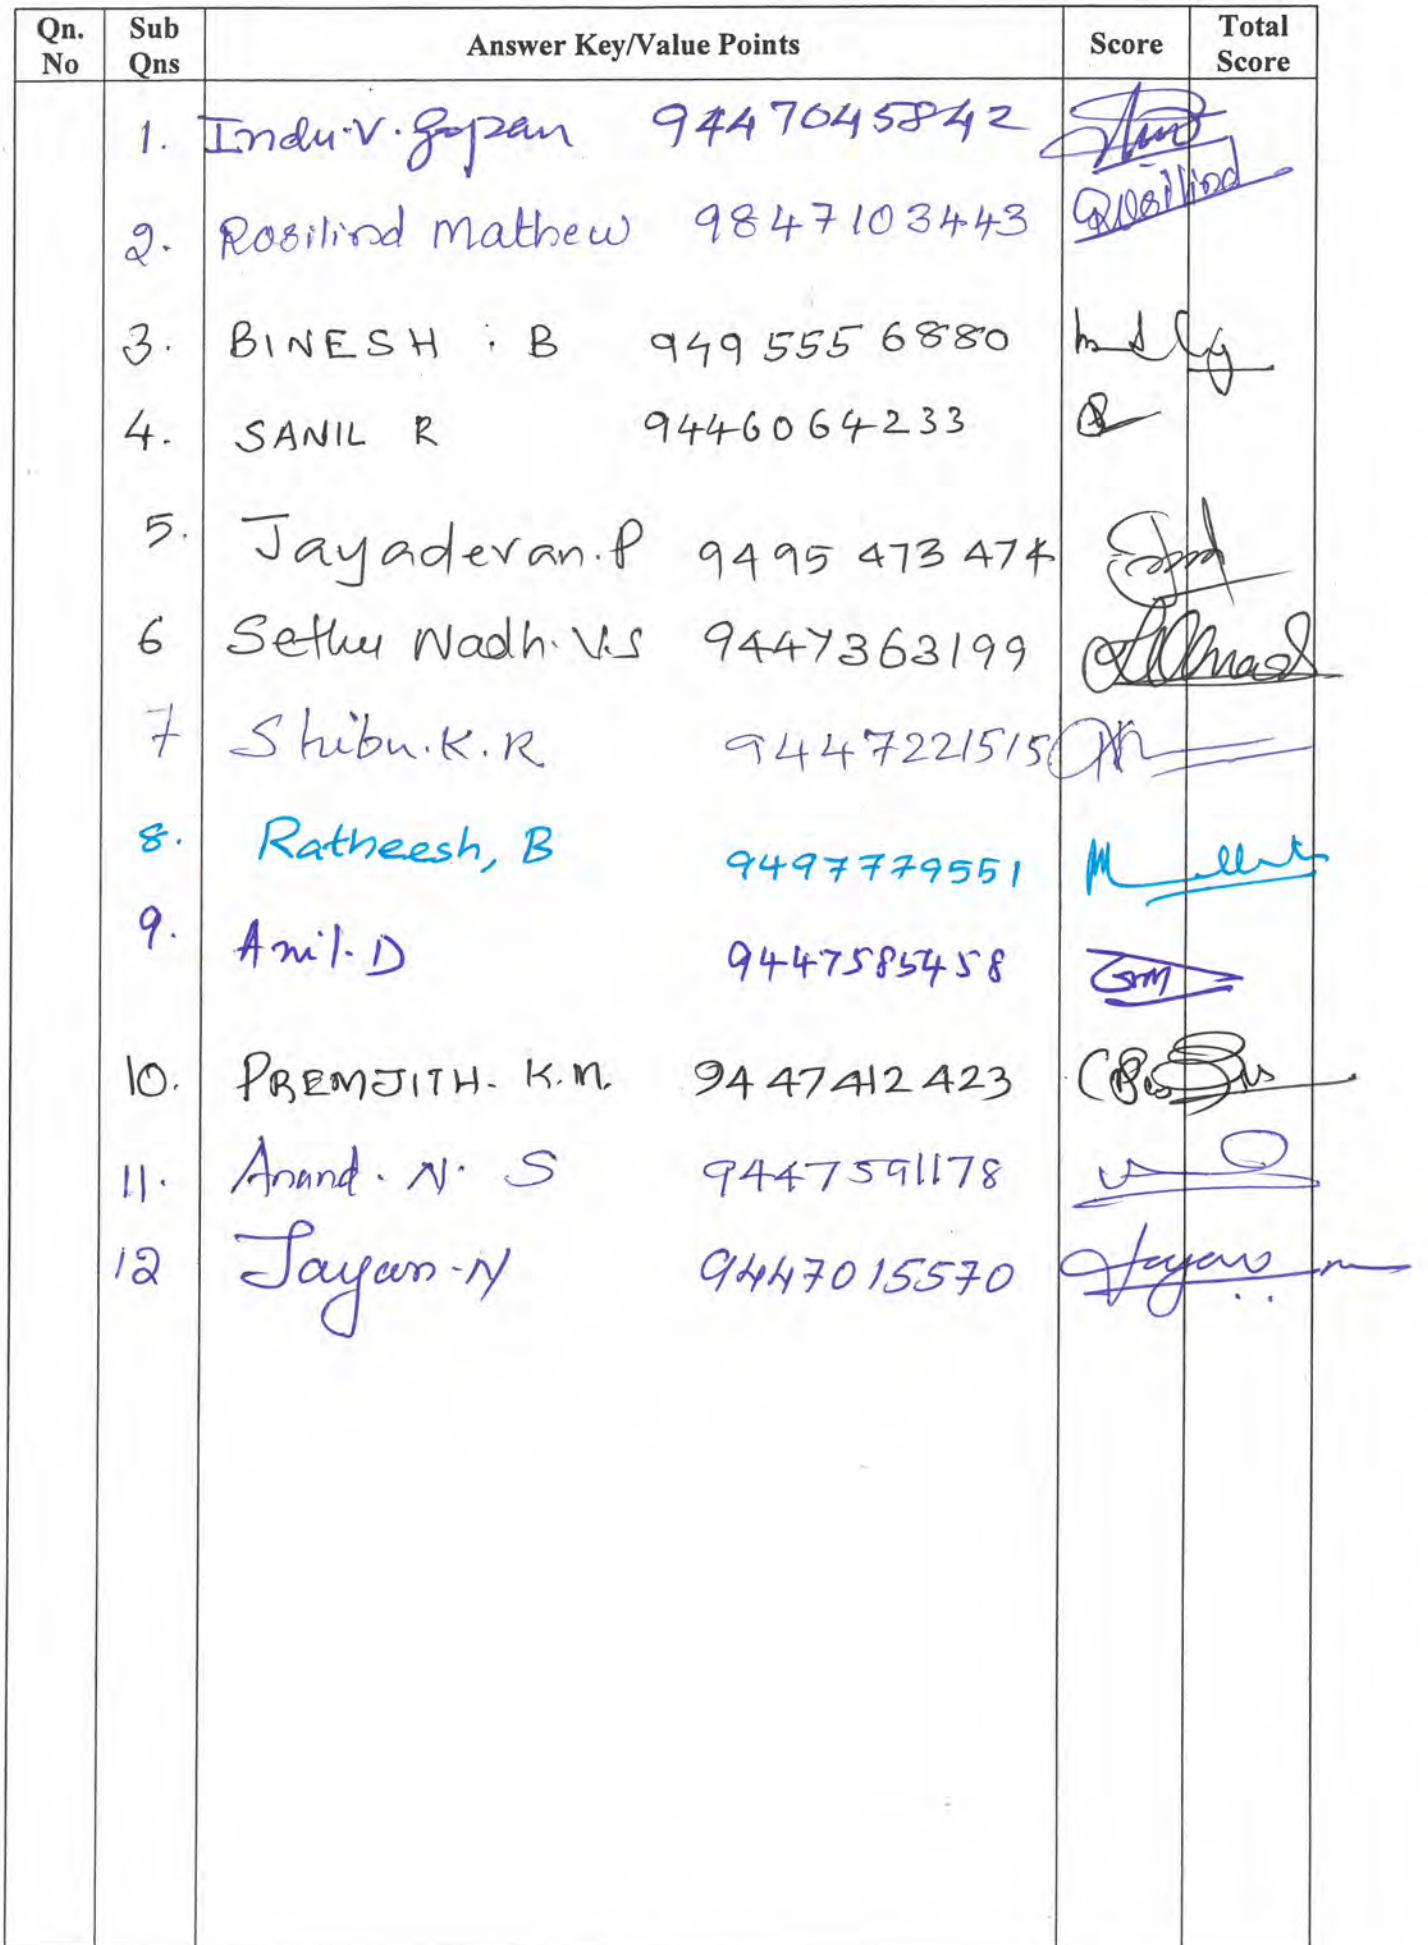 Qn. No Sub Qns Answer Key/Value Points Score Total Score
1. Indu.V.Gopan 9447045842
2. Rosilind Mathew 9847103443 Rosilind
3. BINESH . B 949 555 6880
4. SANIL R 9446064233
5. Jayadevan.P 9495 473 474
6 Sethu Nadh.V.S 9447363199
7 Shibu.K.R 9447221515
8. Ratheesh, B 9497779551
9. Anil.D 9447585458
10. PREMJITH. K.M. 9447412423
11. Anand. N. S 9447591178
12 Jayan-N 9447015570 Jayan